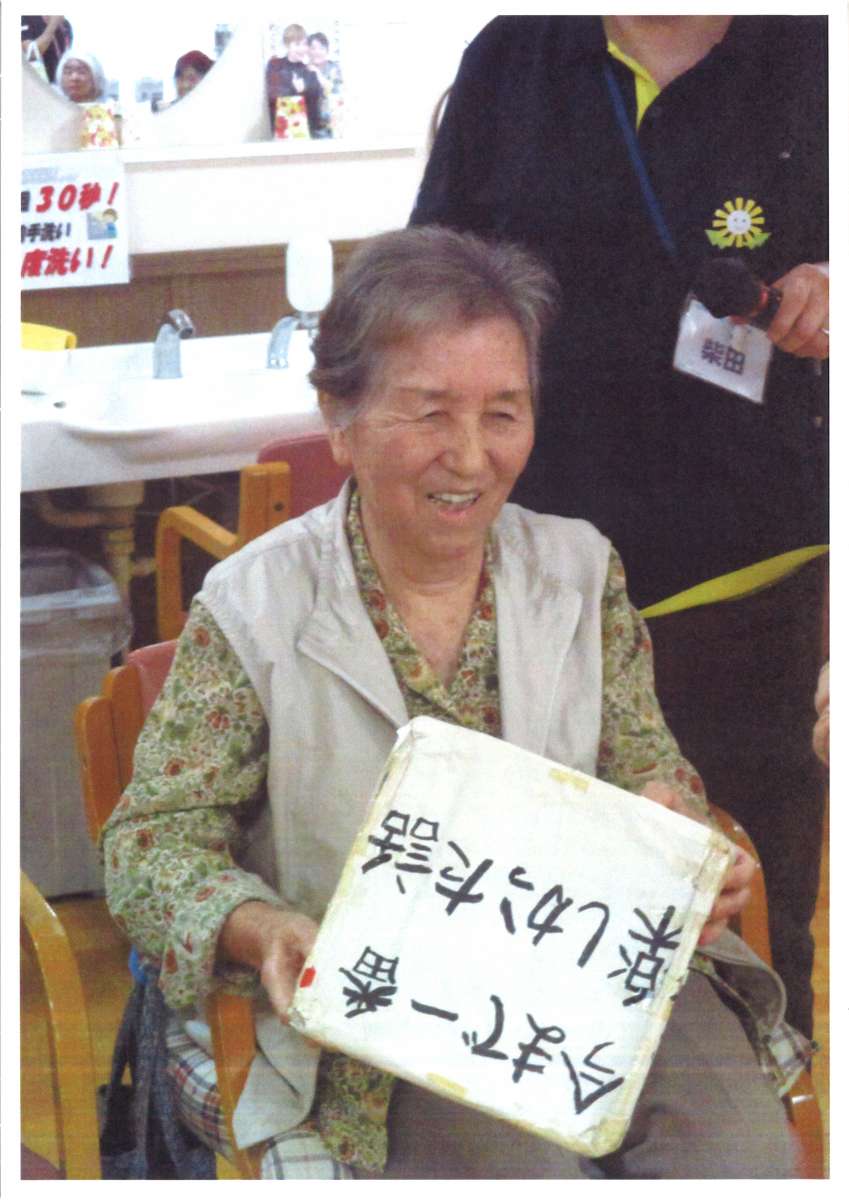 30秒！
手洗い
度洗い！
柴田
今まで一番
楽しかった話